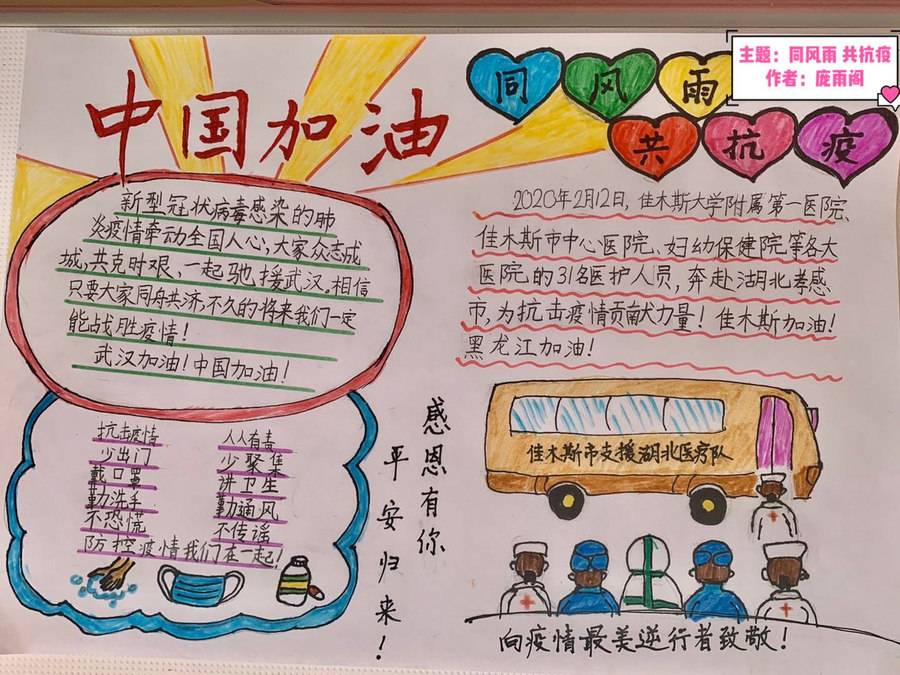 中国加油
同风雨
共抗疫
主题：同风雨 共抗疫
作者：庞雨阁
新型冠状病毒感染的肺
炎疫情牵动全国人心,大家众志成
城,共克时艰、一起驰援武汉.相信
只要大家同舟共济,不久的将来我们一定
能战胜疫情!
武汉加油!中国加油!
2020年2月12日,佳木斯大学附属第一医院、
佳木斯市中心医院、妇幼保健院等各大
医院的31名医护人员,奔赴湖北孝感
市,为抗击疫情贡献力量!佳木斯加油!
黑龙江加油!
抗击疫情 人人有责
少出门 少聚集
戴口罩 讲卫生
勤洗手 勤通风
不恐慌 不传谣
防控疫情我们在一起!
感恩有你
平安归来!
佳木斯市支援湖北医疗队
向疫情最美逆行者致敬!